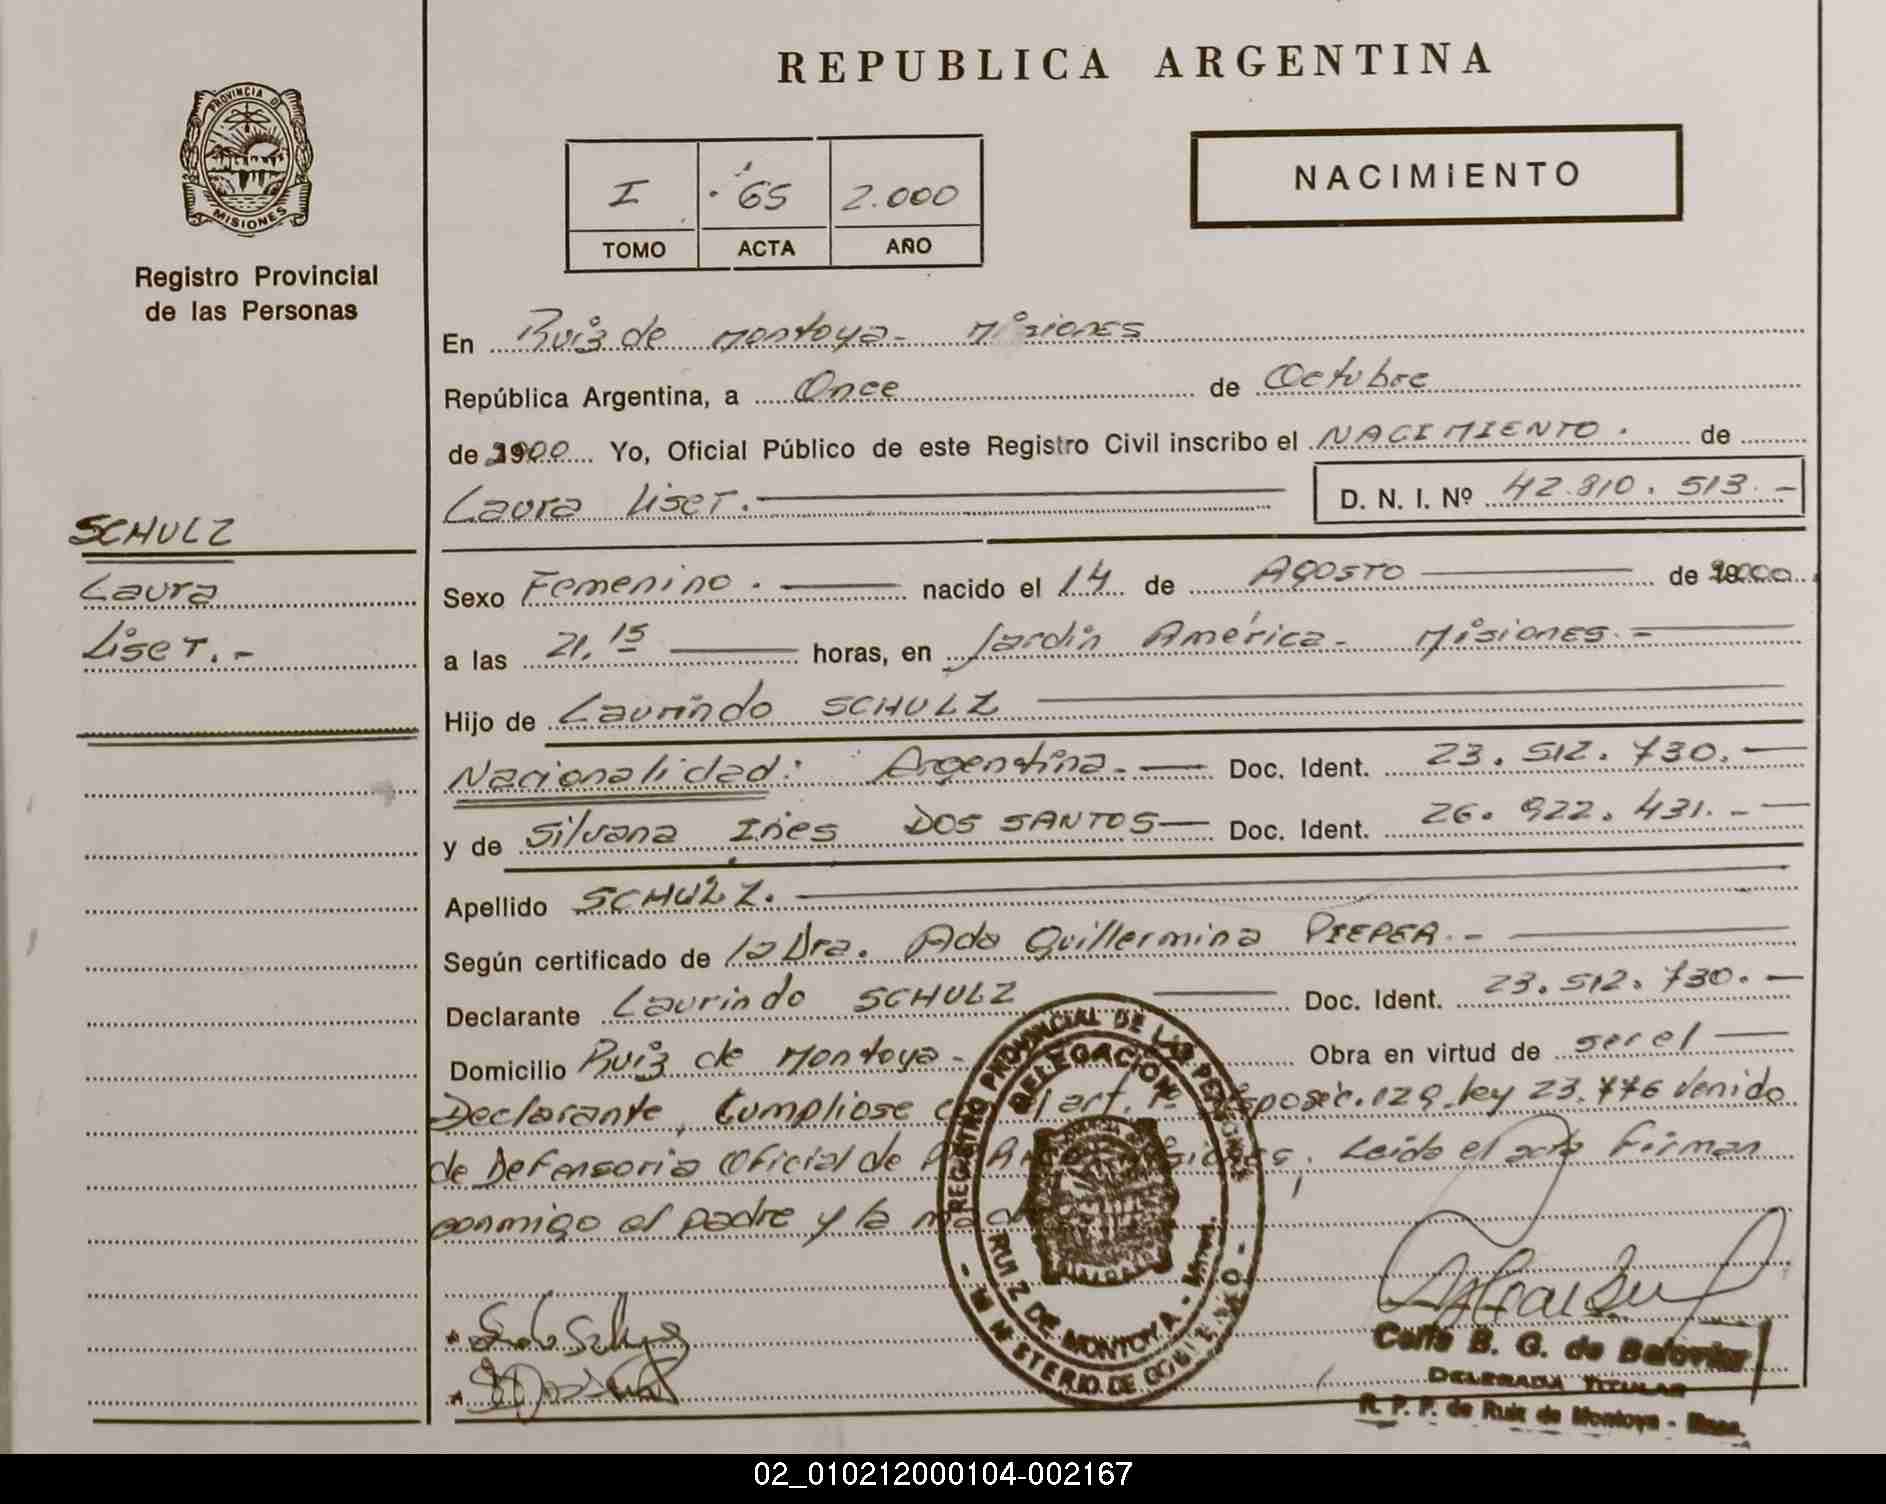 PROVINCIA DE
MISIONES
Registro Provincial
de las Personas
SCHULZ
Laura
Liset.-
REPUBLICA ARGENTINA
I 65 2.000
TOMO ACTA AÑO
NACIMIENTO
En Ruiz de Montoya - Misiones
República Argentina, a Once de Octubre
de 2000 Yo, Oficial Público de este Registro Civil inscribo el NACIMIENTO. de
Laura Liset. D. N. I. Nº 42.810.513.-
Sexo Femenino. nacido el 14 de Agosto de 2000
a las 21,15 horas, en Jardín América - Misiones.-
Hijo de Laurindo SCHULZ
Nacionalidad: Argentina.- Doc. Ident. 23.512.730.-
y de Silvana Inés DOS SANTOS Doc. Ident. 26.922.431.-
Apellido SCHULZ.
Según certificado de la Dra. Ada Guillermina PIEPER.-
Declarante Laurindo SCHULZ Doc. Ident. 23.512.730.-
Domicilio Ruiz de Montoya - Obra en virtud de ser el
Declarante, Cumpliose art. 1º ley 23.776 Venido
de Defensoria Oficial de Leido el acta Firman
conmigo el padre y la
REGISTRO PROVINCIAL DE LAS PERSONAS
DELEGACION
RUIZ DE MONTOYA - Mnes.
- MINISTERIO DE GOBIERNO -
B. G. de
DELEGADA TITULAR
R. P. P. de Ruiz de Montoya - Mnes.
02_010212000104-002167